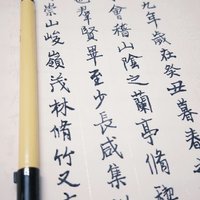 九年歲在癸丑暮春
會稽山陰之蘭亭脩禊
也羣賢畢至少長咸集
崇山峻嶺茂林脩竹又